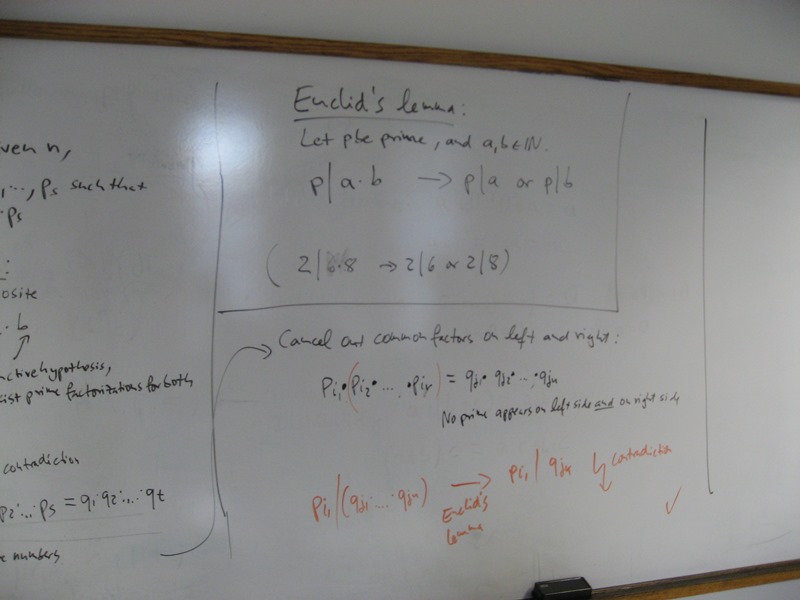 ven n,
,..., Ps such that
Ps
:
osite
· b
nctive hypothosis,
ist prime factorizations for both
contradiction
P2·...Ps = q1·q2·...·qt
e numbers
Euclid's lemma:
Let p be prime, and a,b ∈ IN.
p|a·b → p|a or p|b
(2|6·8 → 2|6 or 2|8)
Cancel out common factors on left and right:
Pi1·(Pi2·...·Pir) = qj1·qj2·...·qju
No prime appears on left side and on right side
Pi1|(qj1·...·qju) → Pi1|qju contradiction
Euclid's
lemma